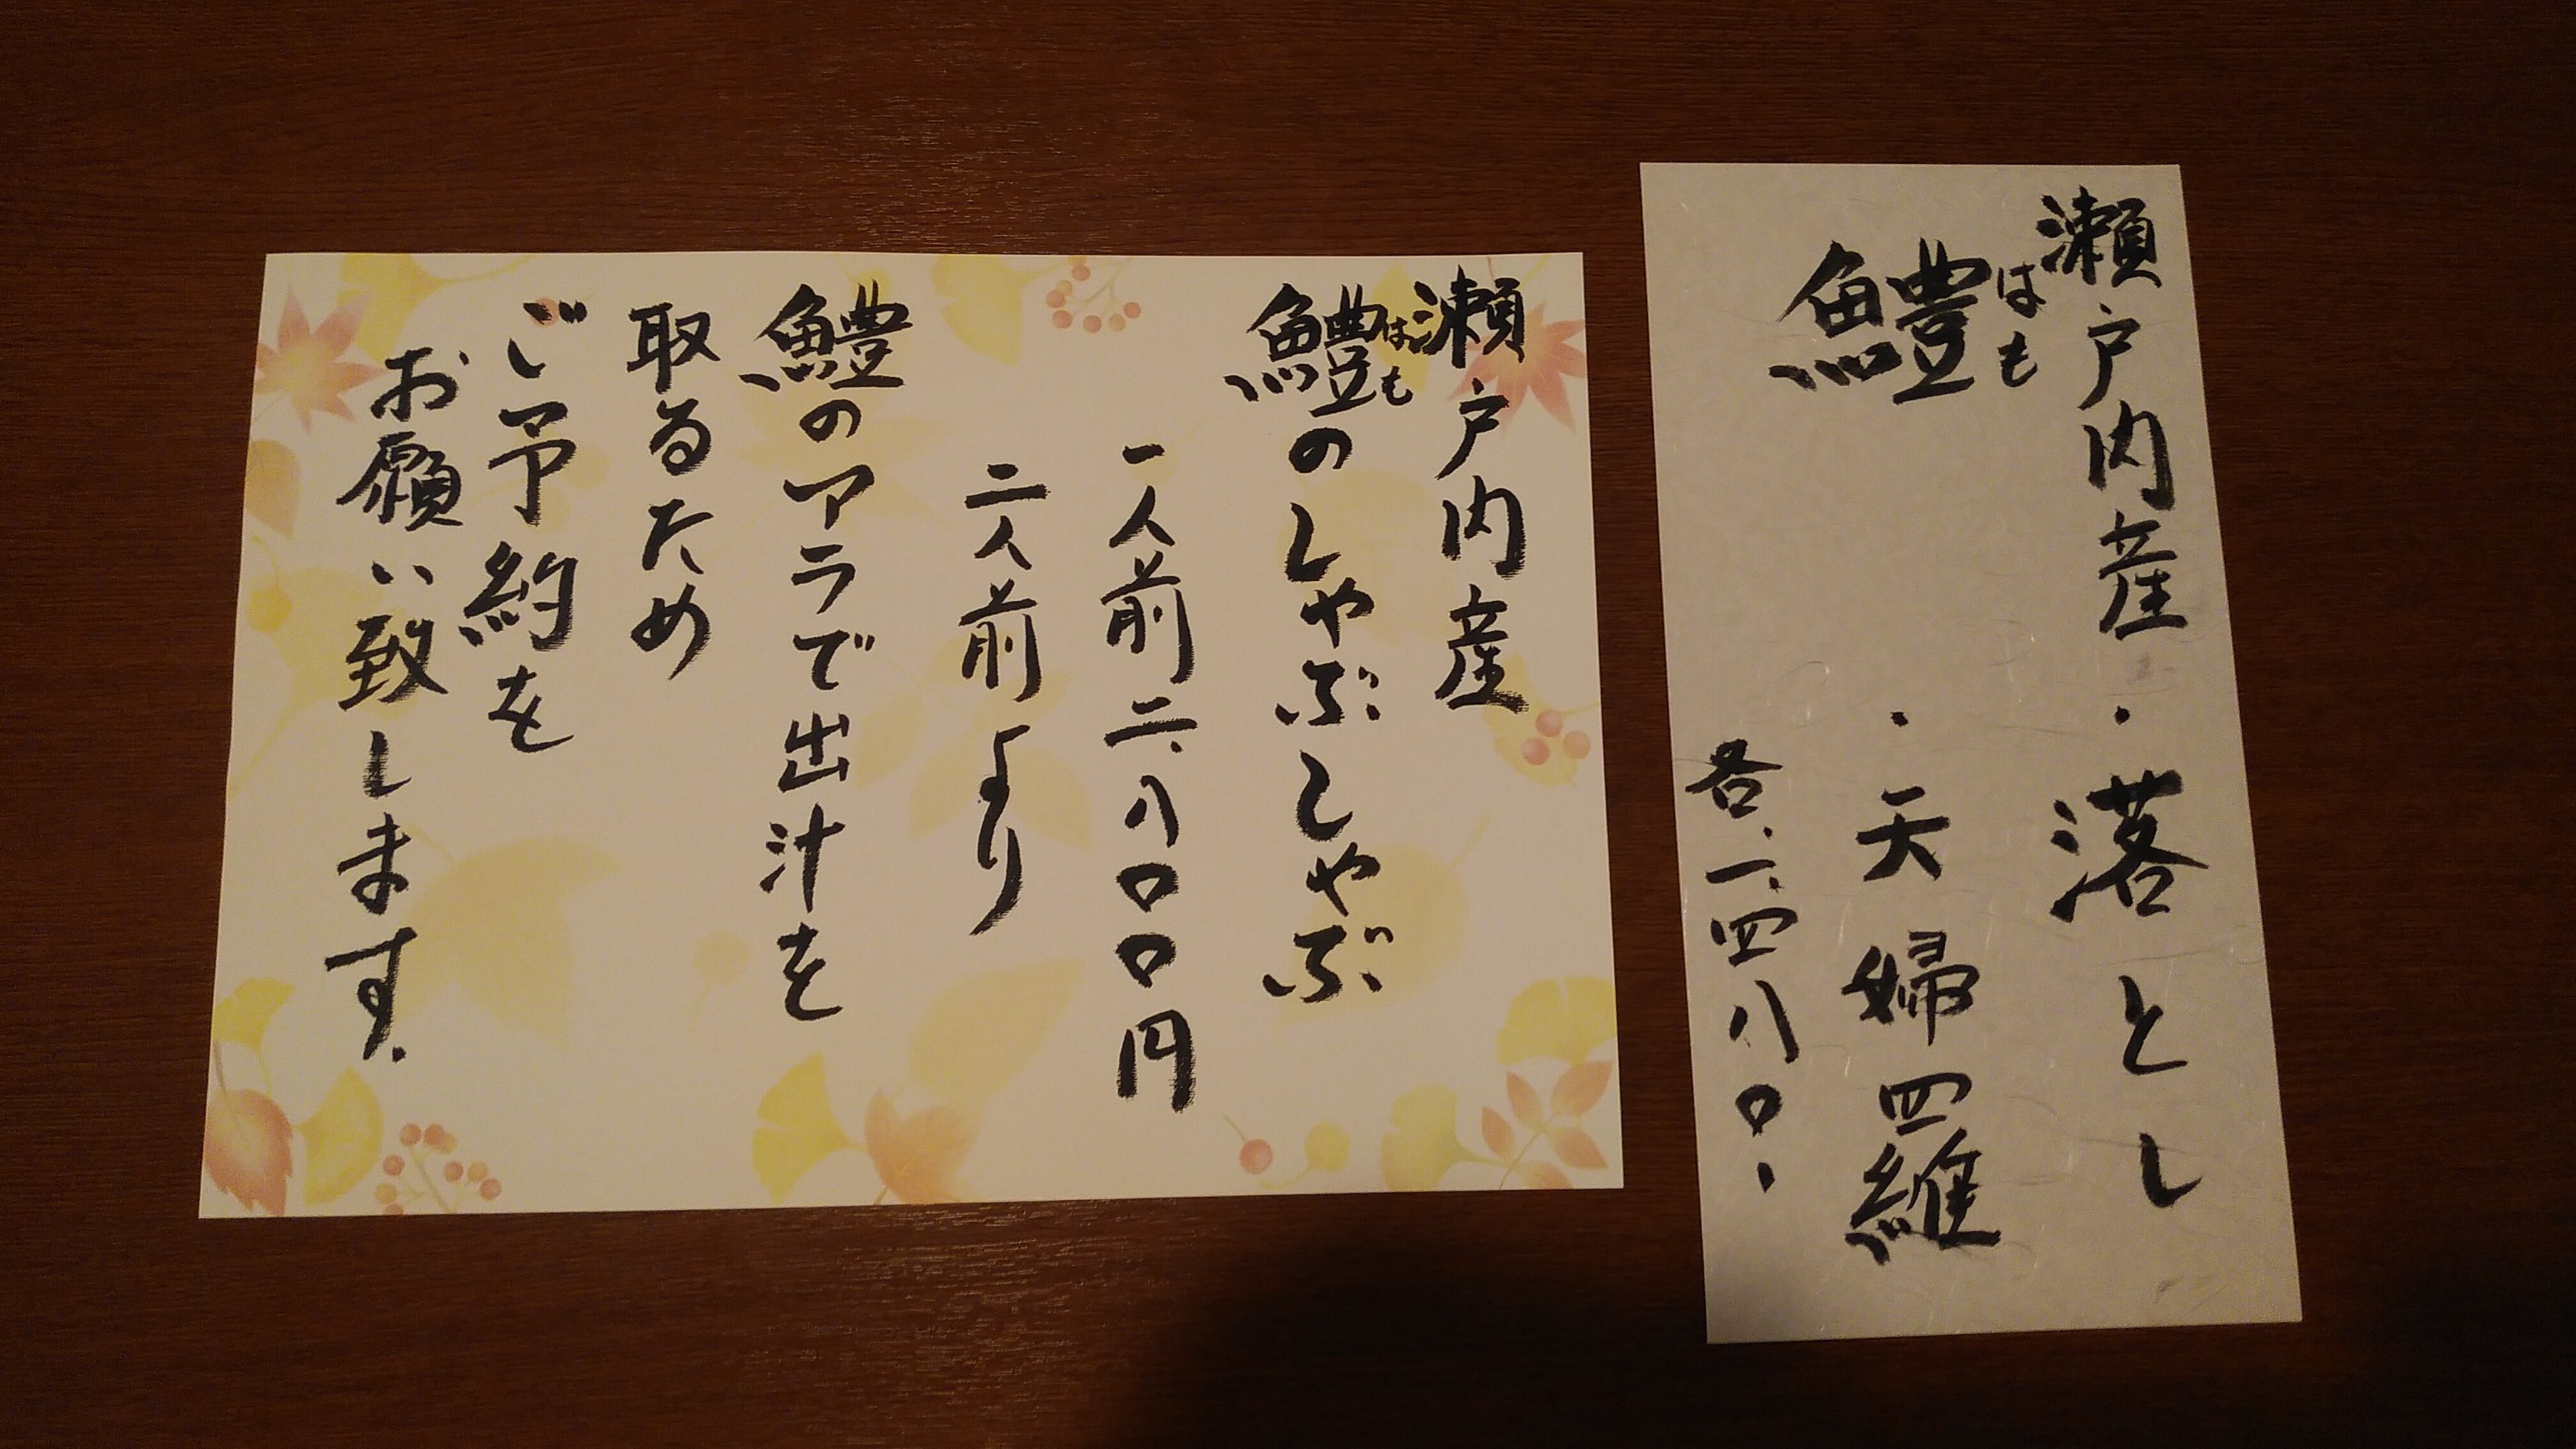 瀬戸内産・落とし
鱧はも
・天婦四維
各、一、四八〇・
瀬戸内産
鱧はものしゃぶしゃぶ
一人前二、八〇〇円
二人前より
鱧のアラで出汁を
取るため
ご予約を
お願い致します。